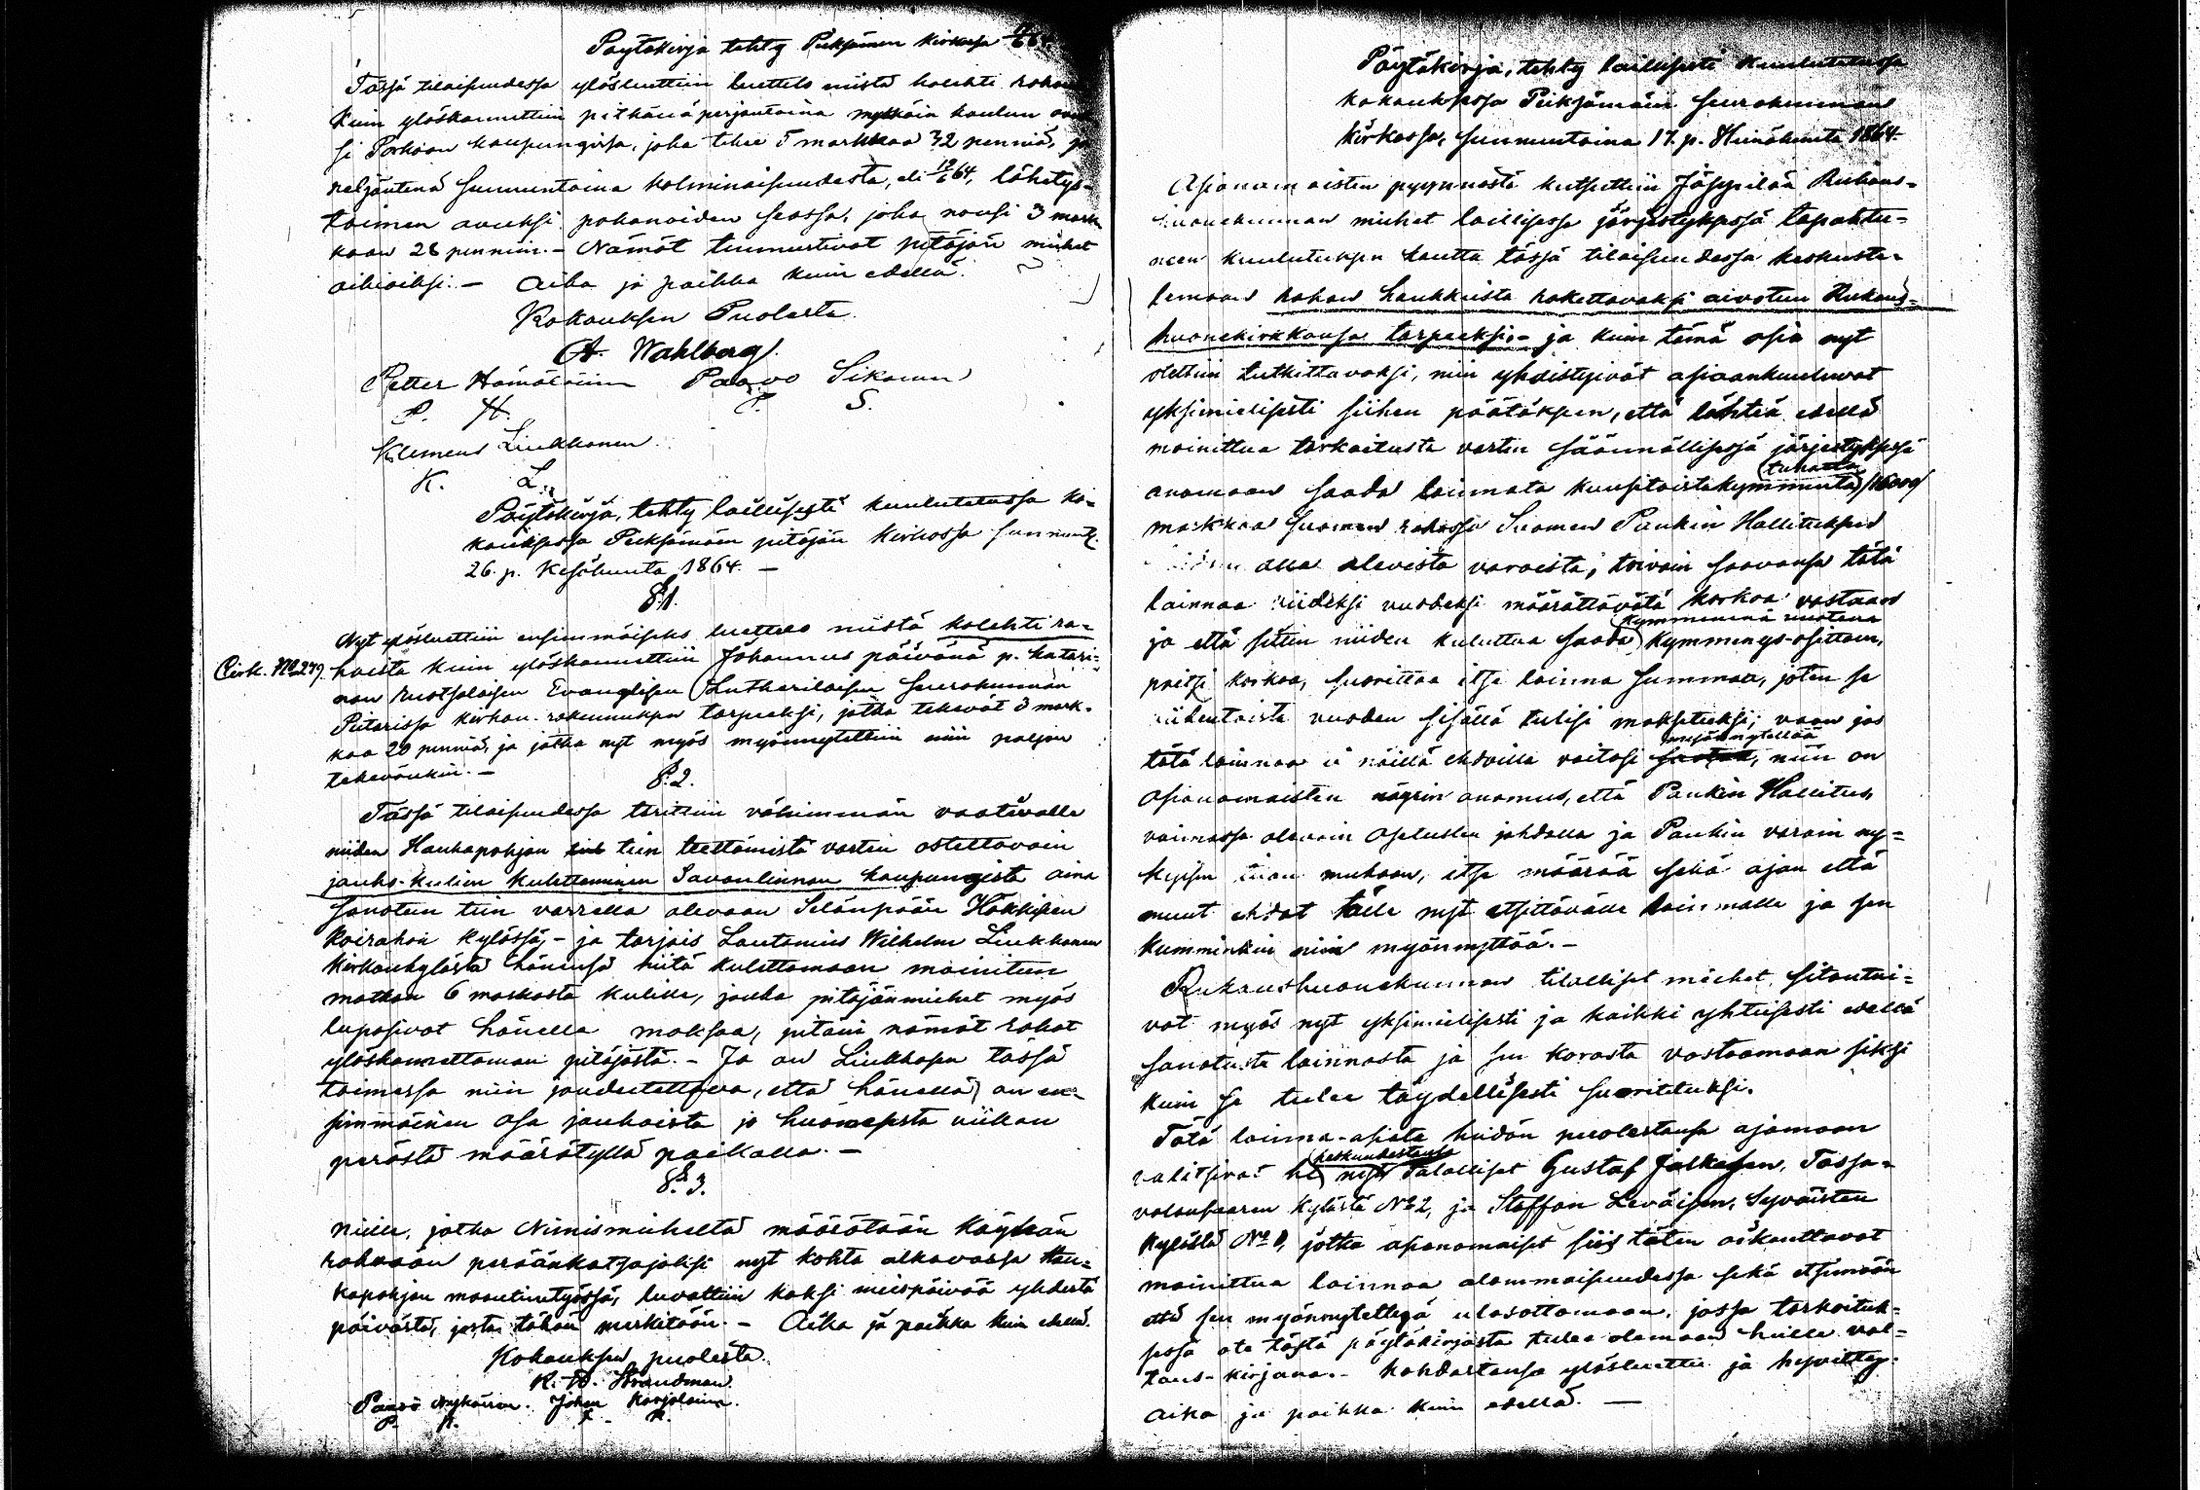 Pöytäkirja tehty Pieksämen kirkossa 12/6 64.
Tässä tilaisuudessa ylösluettiin luettelo niistä kolehti rahoi
kuin ylöskannettiin pitkänä perjantaina mykkäin koulun avuk
si Porkoon kaupungissa, joka tekee 5 markkaa 32 penniä, ja
neljäntenä sunnuntaina kolminaisuudesta, eli 19/6 64, lähetys-
toimen avuksi pakanoiden seassa, joka nousi 3 mark
kaan 28 penniin. – Nämät tunnustivat pitäjän miehet
oikioiksi. – Aika ja paikka kuin edellä.
Kokouksen Puolesta
A. Wahlberg.
Petter Hämäläinen Paavo Sikanen
P. H. P. S.
Klemens Liukkonen
K. L.
Pöytäkirja, tehty laillisesti kuulutetussa ko-
kouksessa Pieksämäen pitäjän kirkossa sunnunt.
26. p. Kesäkuuta 1864. –
§.1.
Nyt ylösluettiin ensimmäiseks luettelo niistä kolehti ra-
Cirk. No 279. hoista kuin ylöskannettiin Johannus päivänä p. Katari-
nan Ruotsalaisen Evanglisen Lutherilaisen Seurakunnan
Pietarissa kirkon rakennuksen tarpeeksi, jotka tekevät 3 mark-
kaa 20 penniä, ja jotka nyt myös myönnytettiin niin paljon
tekevänkin. –
§.2.
Tässä tilaisuudessa tarittiin vähimmän vaativalle
niiden Haukapohjan tien teettämistä varten ostettavain
jauho-kulien kulettaminen Savonlinnan kaupungista aina
sanotun tien varrella olevaan Selänpään Häkkisen
Koirahan kylässä, – ja tarjois Lautamies Wilhelm Liukkonen
Kirkonkylästä hänensä niitä kulettamaan mainitun
matkan 6 markasta kulilta, jonka pitäjänmiehet myös
lupasivat hänelle maksaa, pitäin nämät rahat
ylöskannettaman pitäjästä. – Ja on Liukkosen tässä
toimessa niin joudutettava, että hänellä on en-
simmäinen osa jauhoista jo huomesesta viikon
perästä määrätyllä paikalla. –
§.3.
Niille, jotka Nimismieheltä määrätään käymään
rahvaan peräänkatsojoiksi nyt kohta alkavassa Hau-
kapohjan maantientyössä, luvattiin kaksi miespäivää yhdestä
päivästä, josta tähän merkitään. – Aika ja paikka kuin edellä.
Kokouksen puolesta.
K. W. Strandman.
Paavo Nykänen. Johan Karjalainen.
P. N. J. K.
Pöytäkirja, tehty laillisesti kuulutetussa
kokouksessa Pieksämäin Seurakunnan
kirkossa, sunnuntaina 17. p. Heinäkuuta 1864.
Asianomaisten pyynnöstä kutsuttiin Jäppilän Rukous-
huonekunnan miehet laillisessa järjestyksessä tapahtu-
neen kuulutuksen kautta tässä tilaisuudessa keskuste-
lemaan rahan hankkiista rakettavaksi aivotun Rukous-
huonekirkkonsa tarpeeksi. – ja kuin tämä asia nyt
otettiin tutkittavaksi, niin yhdistyivät asiaankuuluvat
yksimielisesti siihen päätöksen, että lähteä edellä
mainittua tarkoitusta varten säännöllisessä järjestyksessä
tuhatta
anomaan saada lainnata kuusitoistakymmentä /16000/
markkaa Suomen rahassa Suomen Pankin Hallituksen
alla olevista varoista; toivoin saavansa tätä
lainnaa viideksi vuodeksi määrättävätä korkoa vastaan
kymmenenä vuotena
ja että sitten niiden kuluttua saada kymmenys-osittain,
paitsi korkoa, suorittaa itse lainna summan, joten se
viidentoista vuoden sisällä tulisi maksetuksi; vaan jos
myönnytellää
tätä lainnaa ei näillä ehdoilla voitasi saada, niin on
asianomaisten nöyrin anomus, että Pankin Hallitus,
voimassa olevain asetusten johdolla ja Pankin varain ny-
kysen tilan mukaan, itse määrää sekä ajan että
muut ehdot tälle nyt etsittävälle lainnalle ja sen
kumminkin niin myönnyttää. –
Rukoushuonekunnan tilalliset miehet sitoutui-
vat myös nyt yksimielisesti ja kaikki yhteisesti edellä
sanotusta lainnasta ja sen korosta vastaamaan siksi
kuin se tulee täydellisesti suoritetuksi.
Tätä lainna-asiata heidän puolestansa ajamaan
keskuudestansa
valitsivat he nyt Talolliset Gustaf Jalkasen, Tassa-
valansaaren kylästä No 2, ja Staffan Leväisen, Syväisten
kylästä No 8, jotka asianomaiset siis täten oikeuttavat
mainittua lainnaa alammaisuudessa sekä etsimään
että sen myönnytettyä ulosottamaan, jossa tarkoituk-
sessa ote tästä pöytäkirjasta tulee olemaan heille val-
tuus-kirjana. – Kohdastansa ylösluettu ja hyvitetty.
Aika ja paikka kuin edellä. –